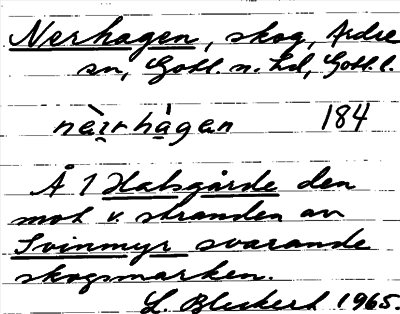 Nerhagen, skog, Ardre
sn, Gotl. n. hd, Gotl. l.
nèi̱rhàgan 184
Å 1 Halsgårde den
mot v. stranden av
Svinmyr svarande
skogsmarken.
L. Bleckert 1965.